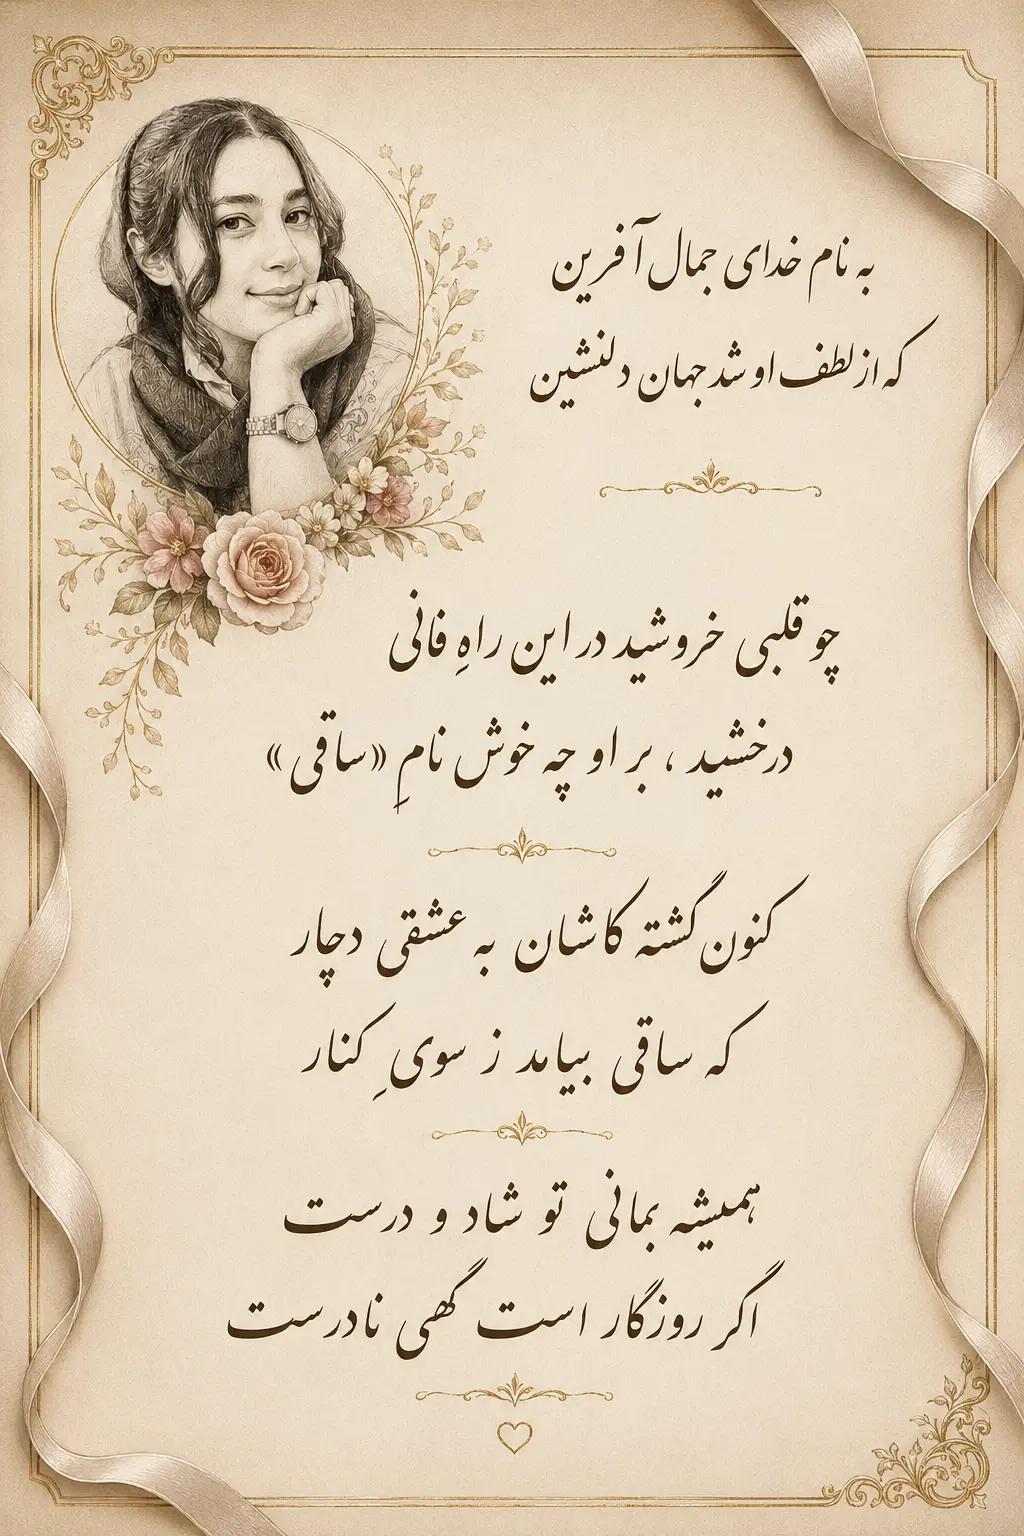 به نام خدای جمال آفرین
که از لطف او شد جهان دلنشین
چو قلبی خروشید در این راهِ فانی
درخشید ، بر او چه خوش نامِ «ساقی»
کنون گشته کاشان به عشقی دچار
که ساقی بیامد ز سویِ کنار
همیشه بمانی تو شاد و درست
اگر روزگار است گهی نادرست